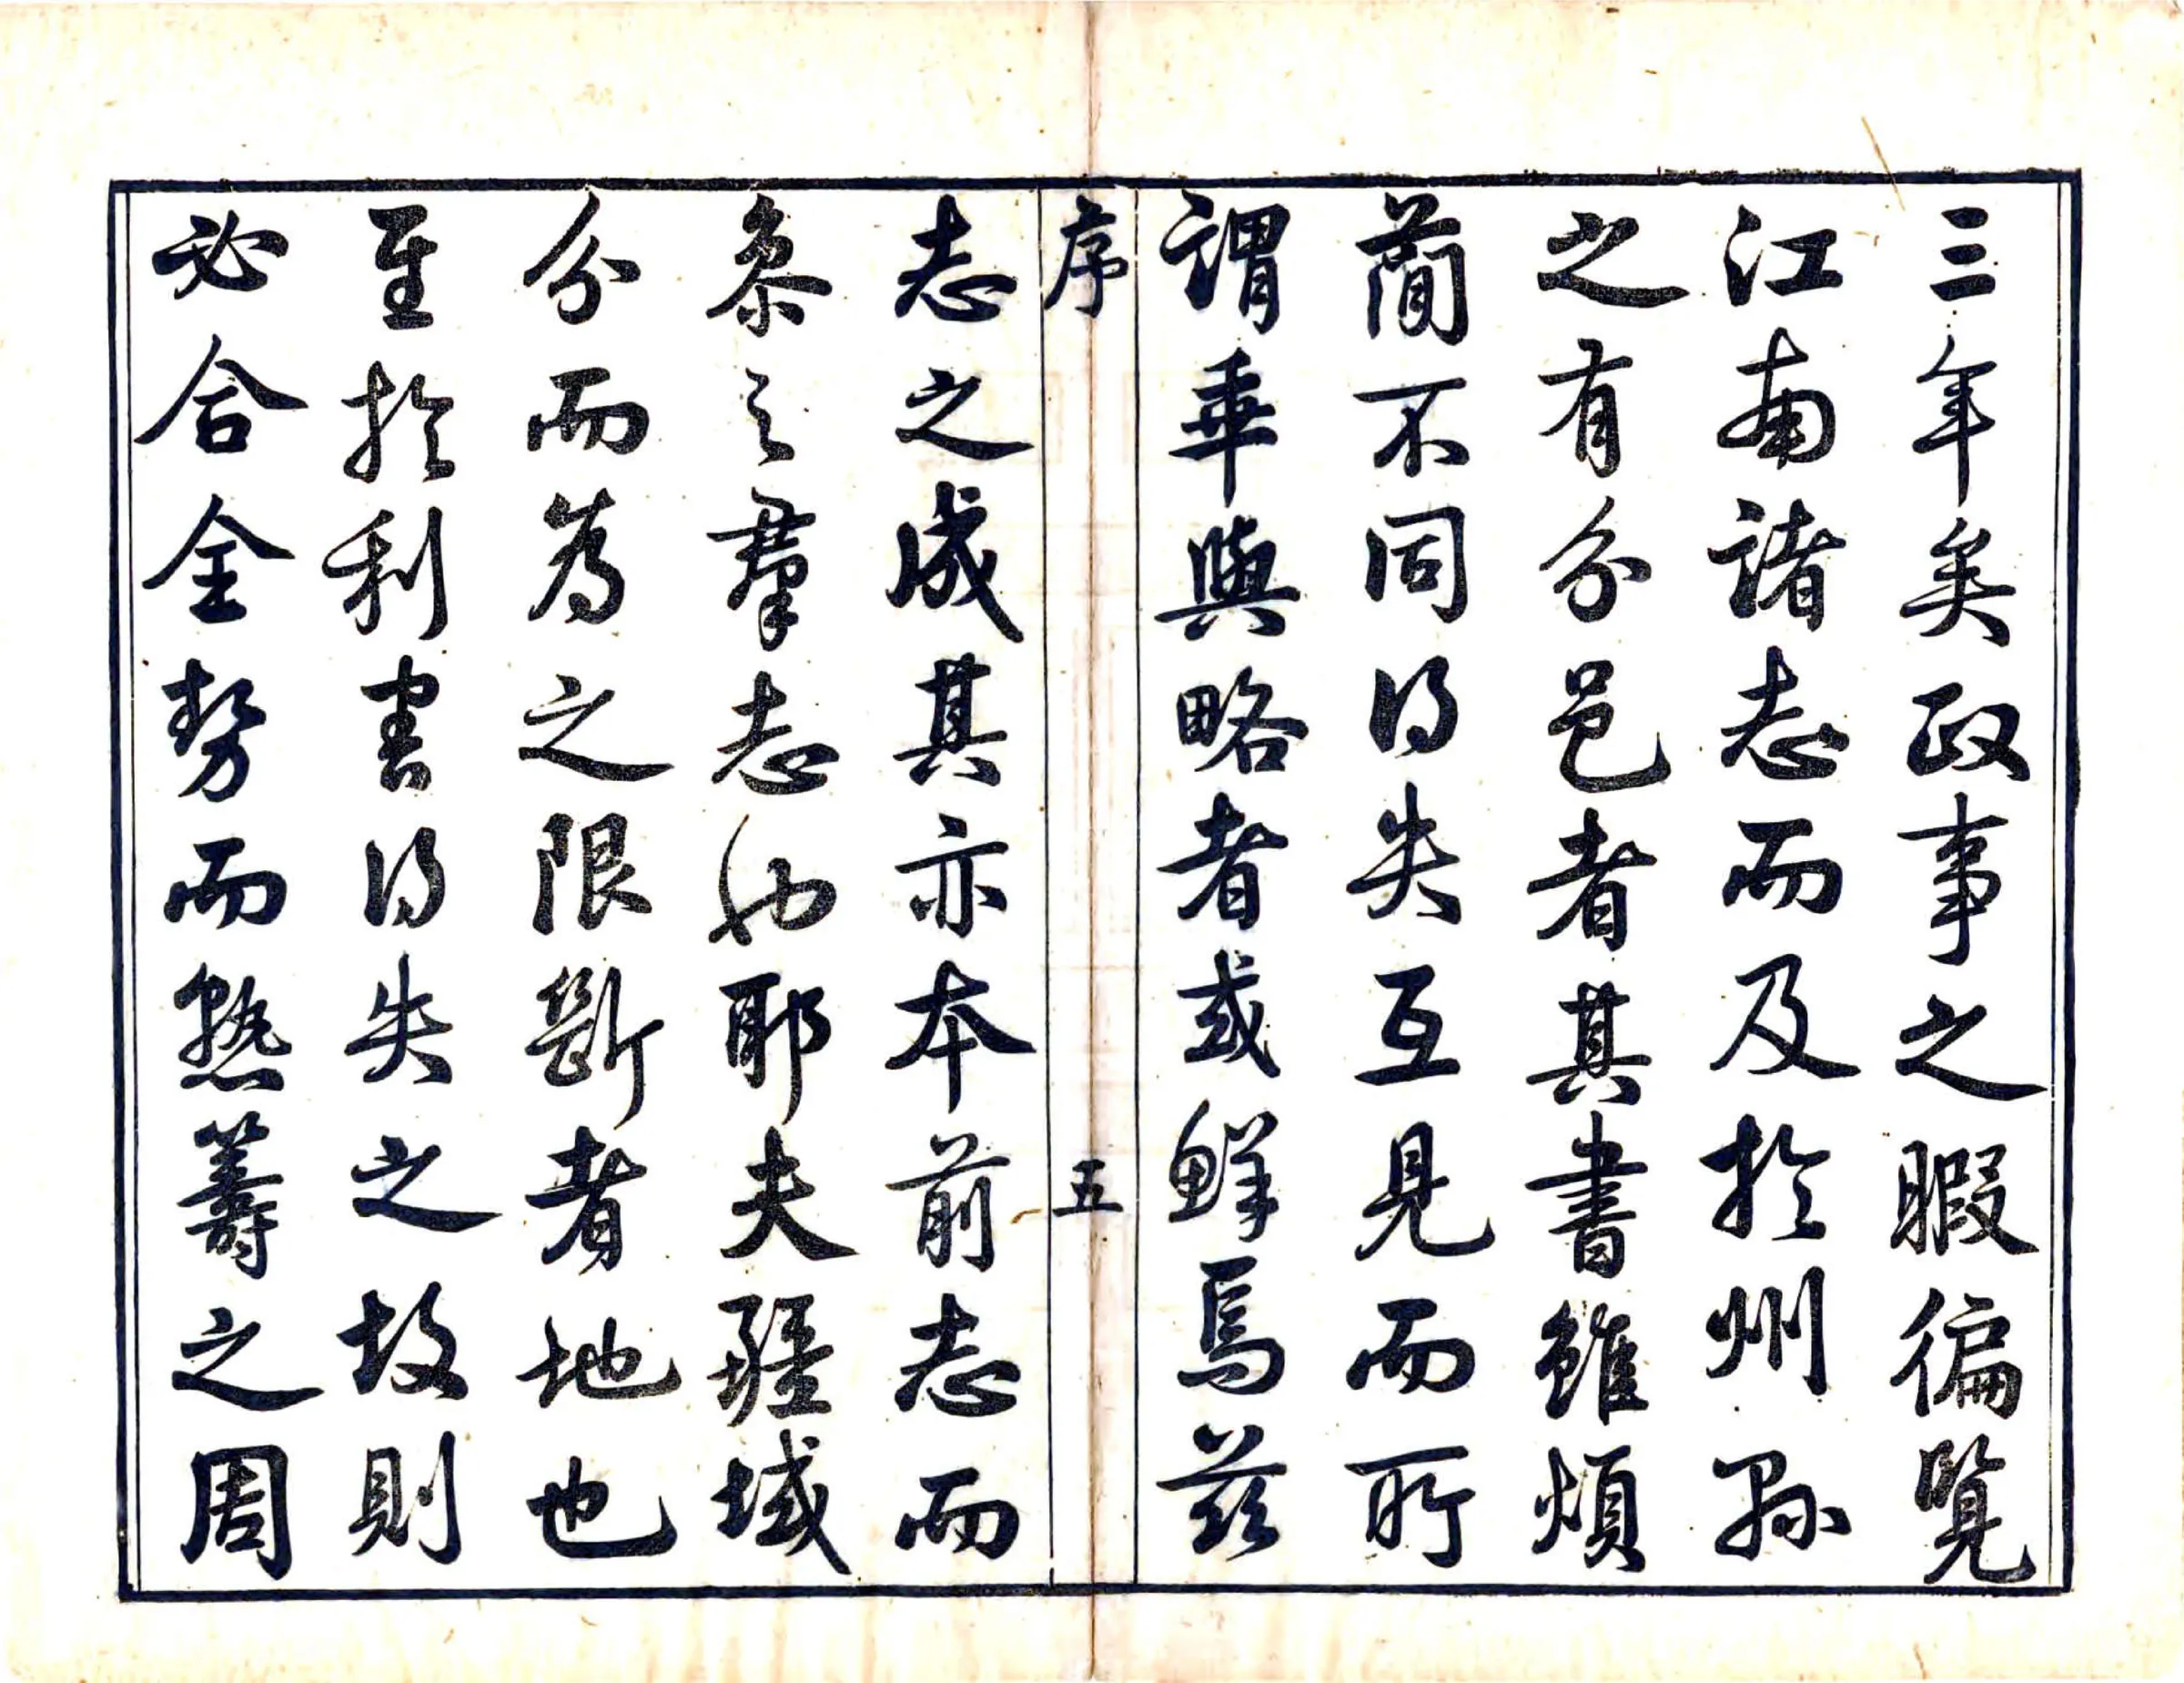 三年矣政事之暇徧覧
江南諸志而及於州縣
之有分邑者其書雖煩
簡不同得失互見而所
謂華與略者或鮮焉兹
序
五
志之成其亦本前志而
叅之羣志也耶夫疆域
分而為之限斷者地也
至於利害得失之故則
必合全勢而熟籌之周